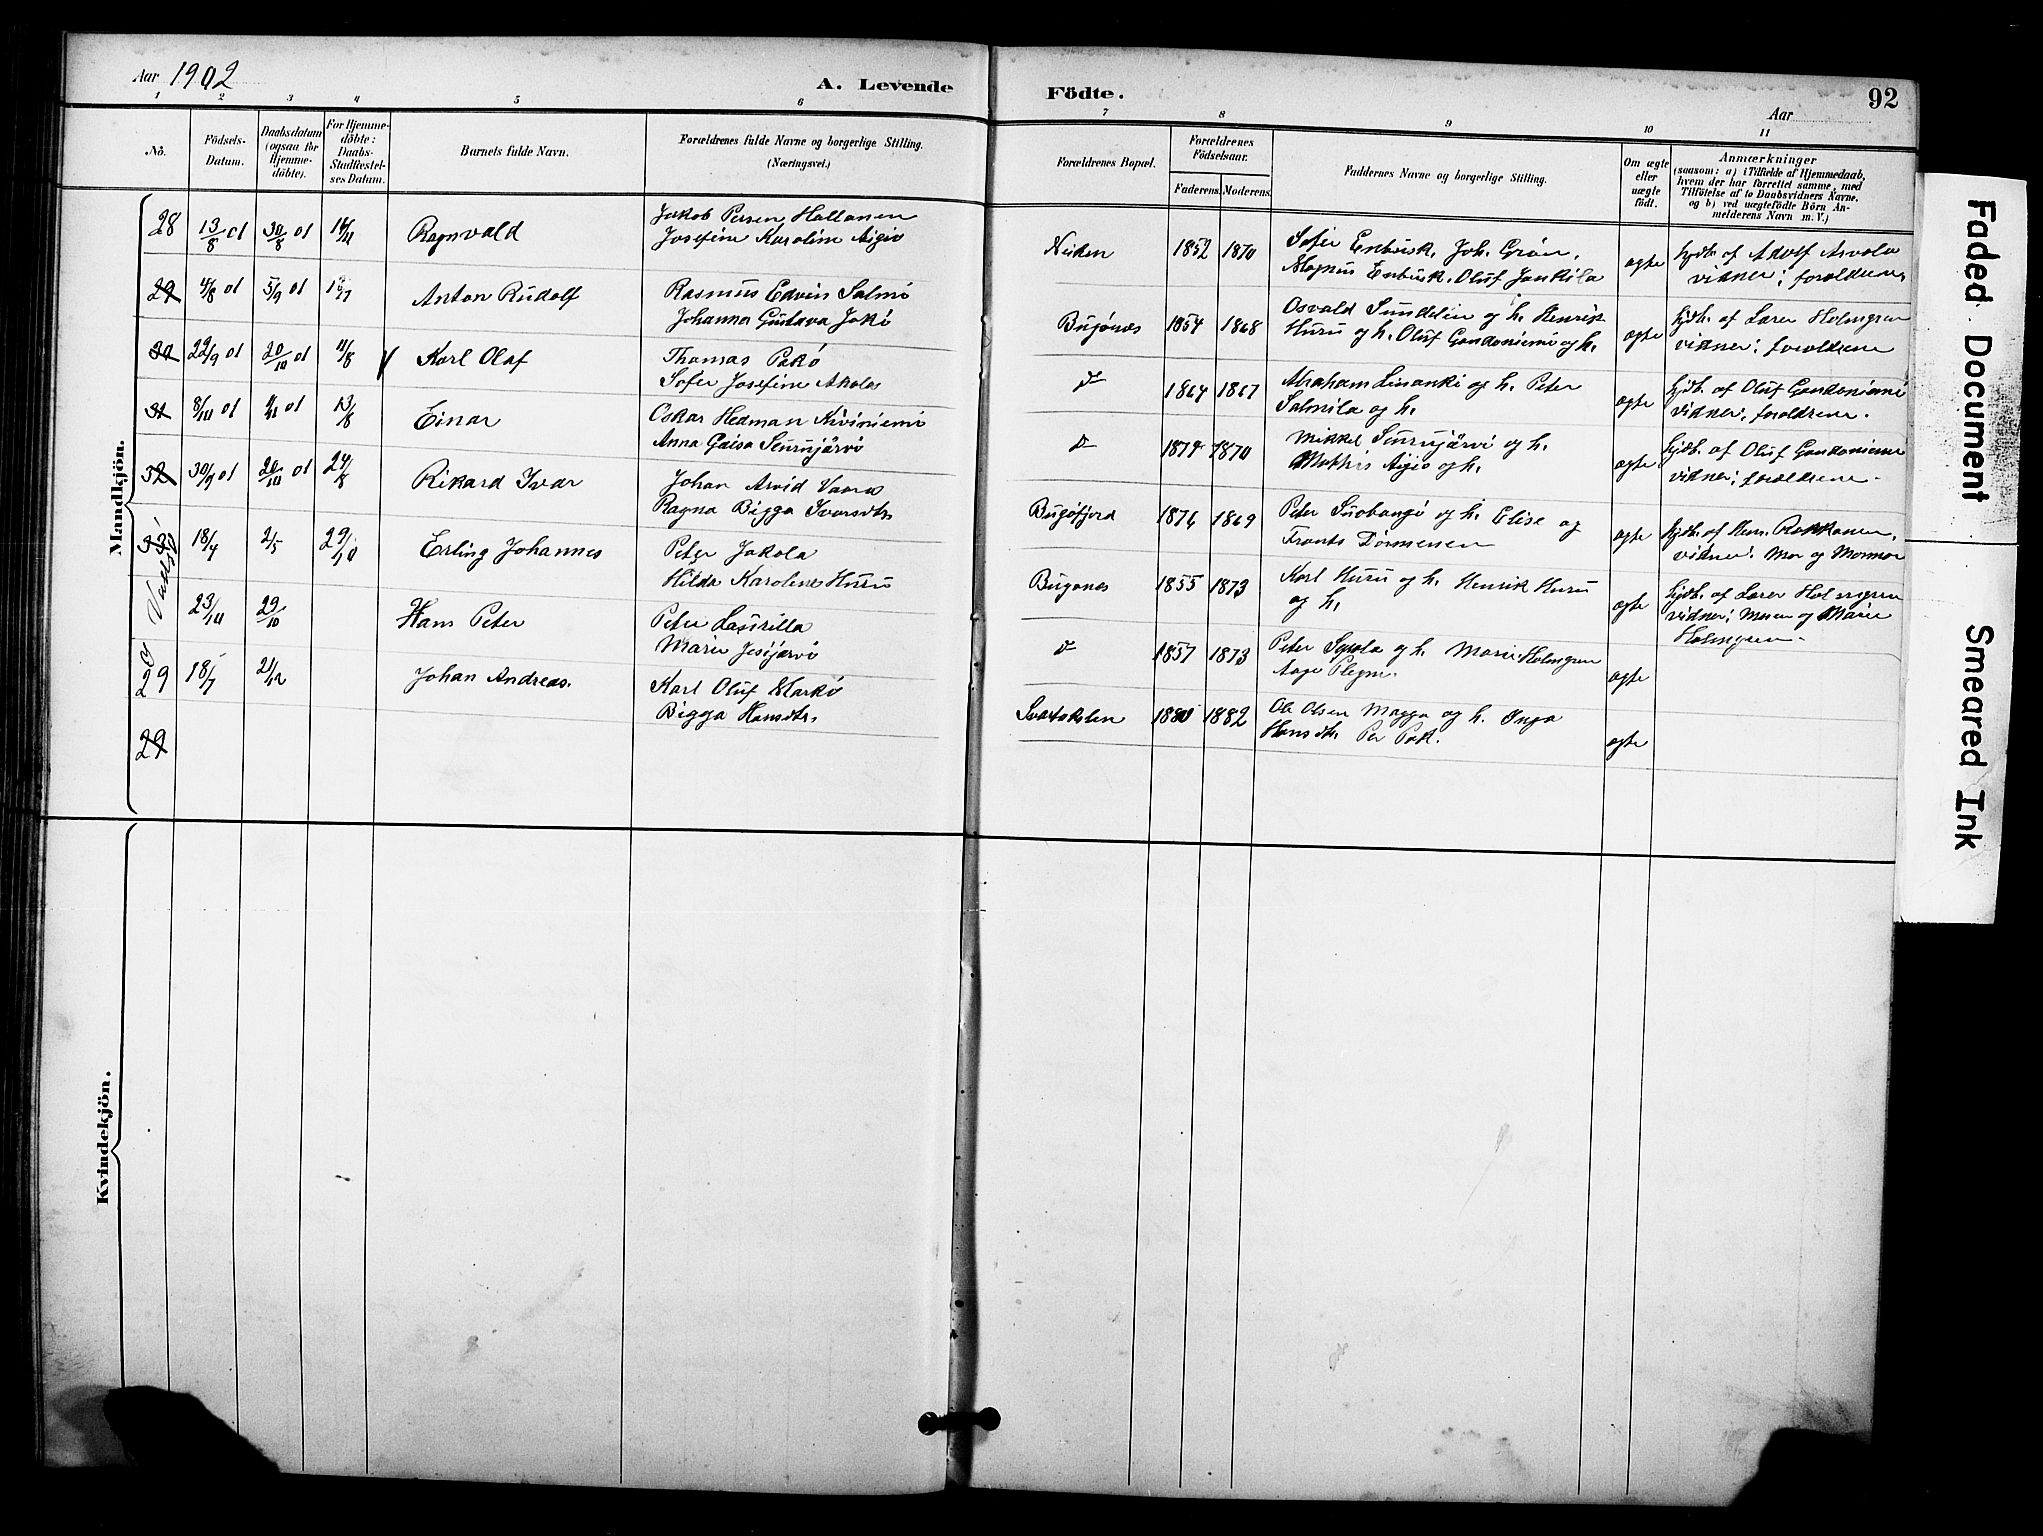 Aar 1902
A. Levende
Födte.
Aar
92
1 2 3 4 5 6 7 8 9 10 11
No.
Födsels-Datum.
Daabsdatum (ogsaa for Hjemme-döbte).
For Hjemme-döbte: Daabs-Stadfæstel-ses Datum.
Barnets fulde Navn.
Forældrenes fulde Navne og borgerlige Stilling.
(Næringsvei.)
Forældrenes Bopæl.
Forældrenes Födselsaar.
Faderens. Moderens.
Faddernes Navne og borgerlige Stilling.
Om ægte eller uægte födt.
Anmærkninger
(saasom: a) i Tilfælde af Hjemmedaab,
hvem der har forrettet samme, med
Tilföielse af to Daabsvidners Navne,
og b) ved uægtefödte Börn An-
melderens Navn m. V.)
Mandkjön.
28 13/8 01 30/8 01 Ragnvald
Jakob Persen Hallonen
Josefine Karoline Aigio
Neiden 1852 1870
Sofie Enbusk, Joh. Grön,
Magnus Enbusk, Oluf Jankila
ægte
hjdb. af Adolf Arvola
vidner: forældrene
29 4/8 01 5/9 01 Anton Rudolf
Rasmus Edvin Salmi
Johanna Gustava Joki
Bugönæs 1854 1868
Osvald Sundelin og h. Henrik
Huru og h. Oluf Gandoniemi og h.
ægte
hjdb. af Lærer Holmgren
vidner: forældrene
30 29/9 01 20/10 01 11/8 Karl Olaf
Thomas Pakö
Sofie Josefine Akola
d 1864 1867
Abraham Linanki og h. Peter
Salmila og h.
ægte
hjdb. af Oluf Gandoniemi
vidner: forældrene.
31 8/10 01 01 13/8 Einar
Oskar Hedman Kiviniemi
Anna Gaisa Seurujärvi
d 1874 1870
Mikkel Seurujärvi og h.
Mathis Aigio og h.
ægte
hjdb. af Oluf Gandoniemi
vidner: forældrene.
32 30/9 01 20/10 01 24/8 Rikard Ivar
Johan Arvid Vaara
Ragna Bigga Ivarsdtr.
Bugöfjord 1876 1869
Peter Suobangi og h. Elise og
Frants Dörmenen
ægte
hjdb. af Hen. Rokkonen,
vidner: Mor og Mormor
33 18/4 2/5 29/10 Erling Johannes
Peter Jakola
Hilda Karoline Huru
Bugönes 1855 1873
Karl Huru og h. Henrik Huru
og h.
ægte
hjdb. af Lærer Holmgren
vidner: Moren og Marie
Holmgren.
23/10 29/10 Hans Peter
Peter Lassrilla
Marie Jesijærvi
d 1857 1873
Peter Sepola og h. Marie Holmgren
Aage Plegm.
ægte
29 18/7 21/12 Johan Andreas.
Karl Oluf Markö
Bigga Hansdtr.
Svartaksla 1880 1882
Ole Olsen Magga og h. Inga
Hansdtr. Per Pak.
ægte
29
Kvindekjön.
Faded Document
Smeared Ink